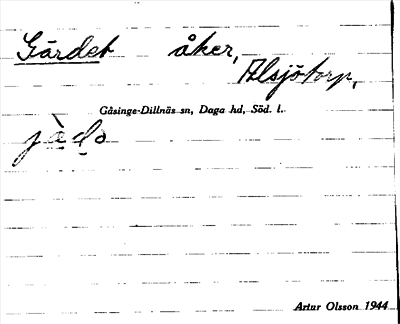 Gärdet åker,
Alsjötorp,
Gåsinge-Dillnäs sn, Daga hd, Söd. l.
Artur Olsson 1944